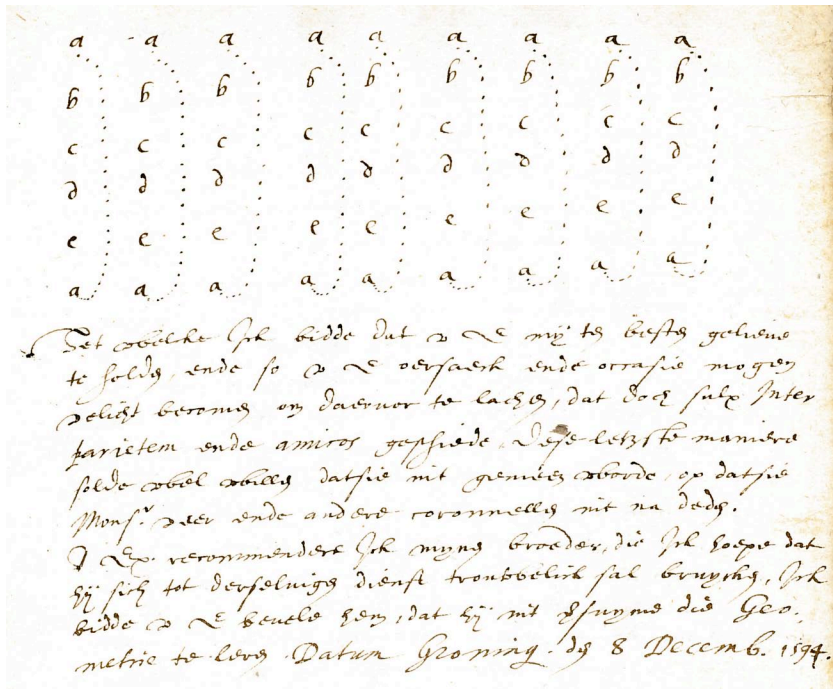 a a a a a a a a a
b b b b b b b b b
c c c c c c c c c
d d d d d d d d d
e e e e e e e e e
a a a a a a a a a
Het welcke Ick bidde dat v E my ten besten gelieve
te holden, ende so v E oersaeck ende occasie mogen
velicht becomen om daervor te lachen, dat doch sulx Inter
parietem ende amicos geschiede. Dese letzste maniere
solde wel willen datsie nit gemeen worde, op datsie
Monsr. veer ende andere coronnells nit na deden.
V Ex. recommendere Ick mynen broeder, die Ick hoepe dat
hy sich tot derselvigen dienst trouwelick sal bruycken, Ick
bidde v E bevele hem, dat hy nit die Geo,
metrie te leren. Datum Groning. den 8 Decemb. 1594.